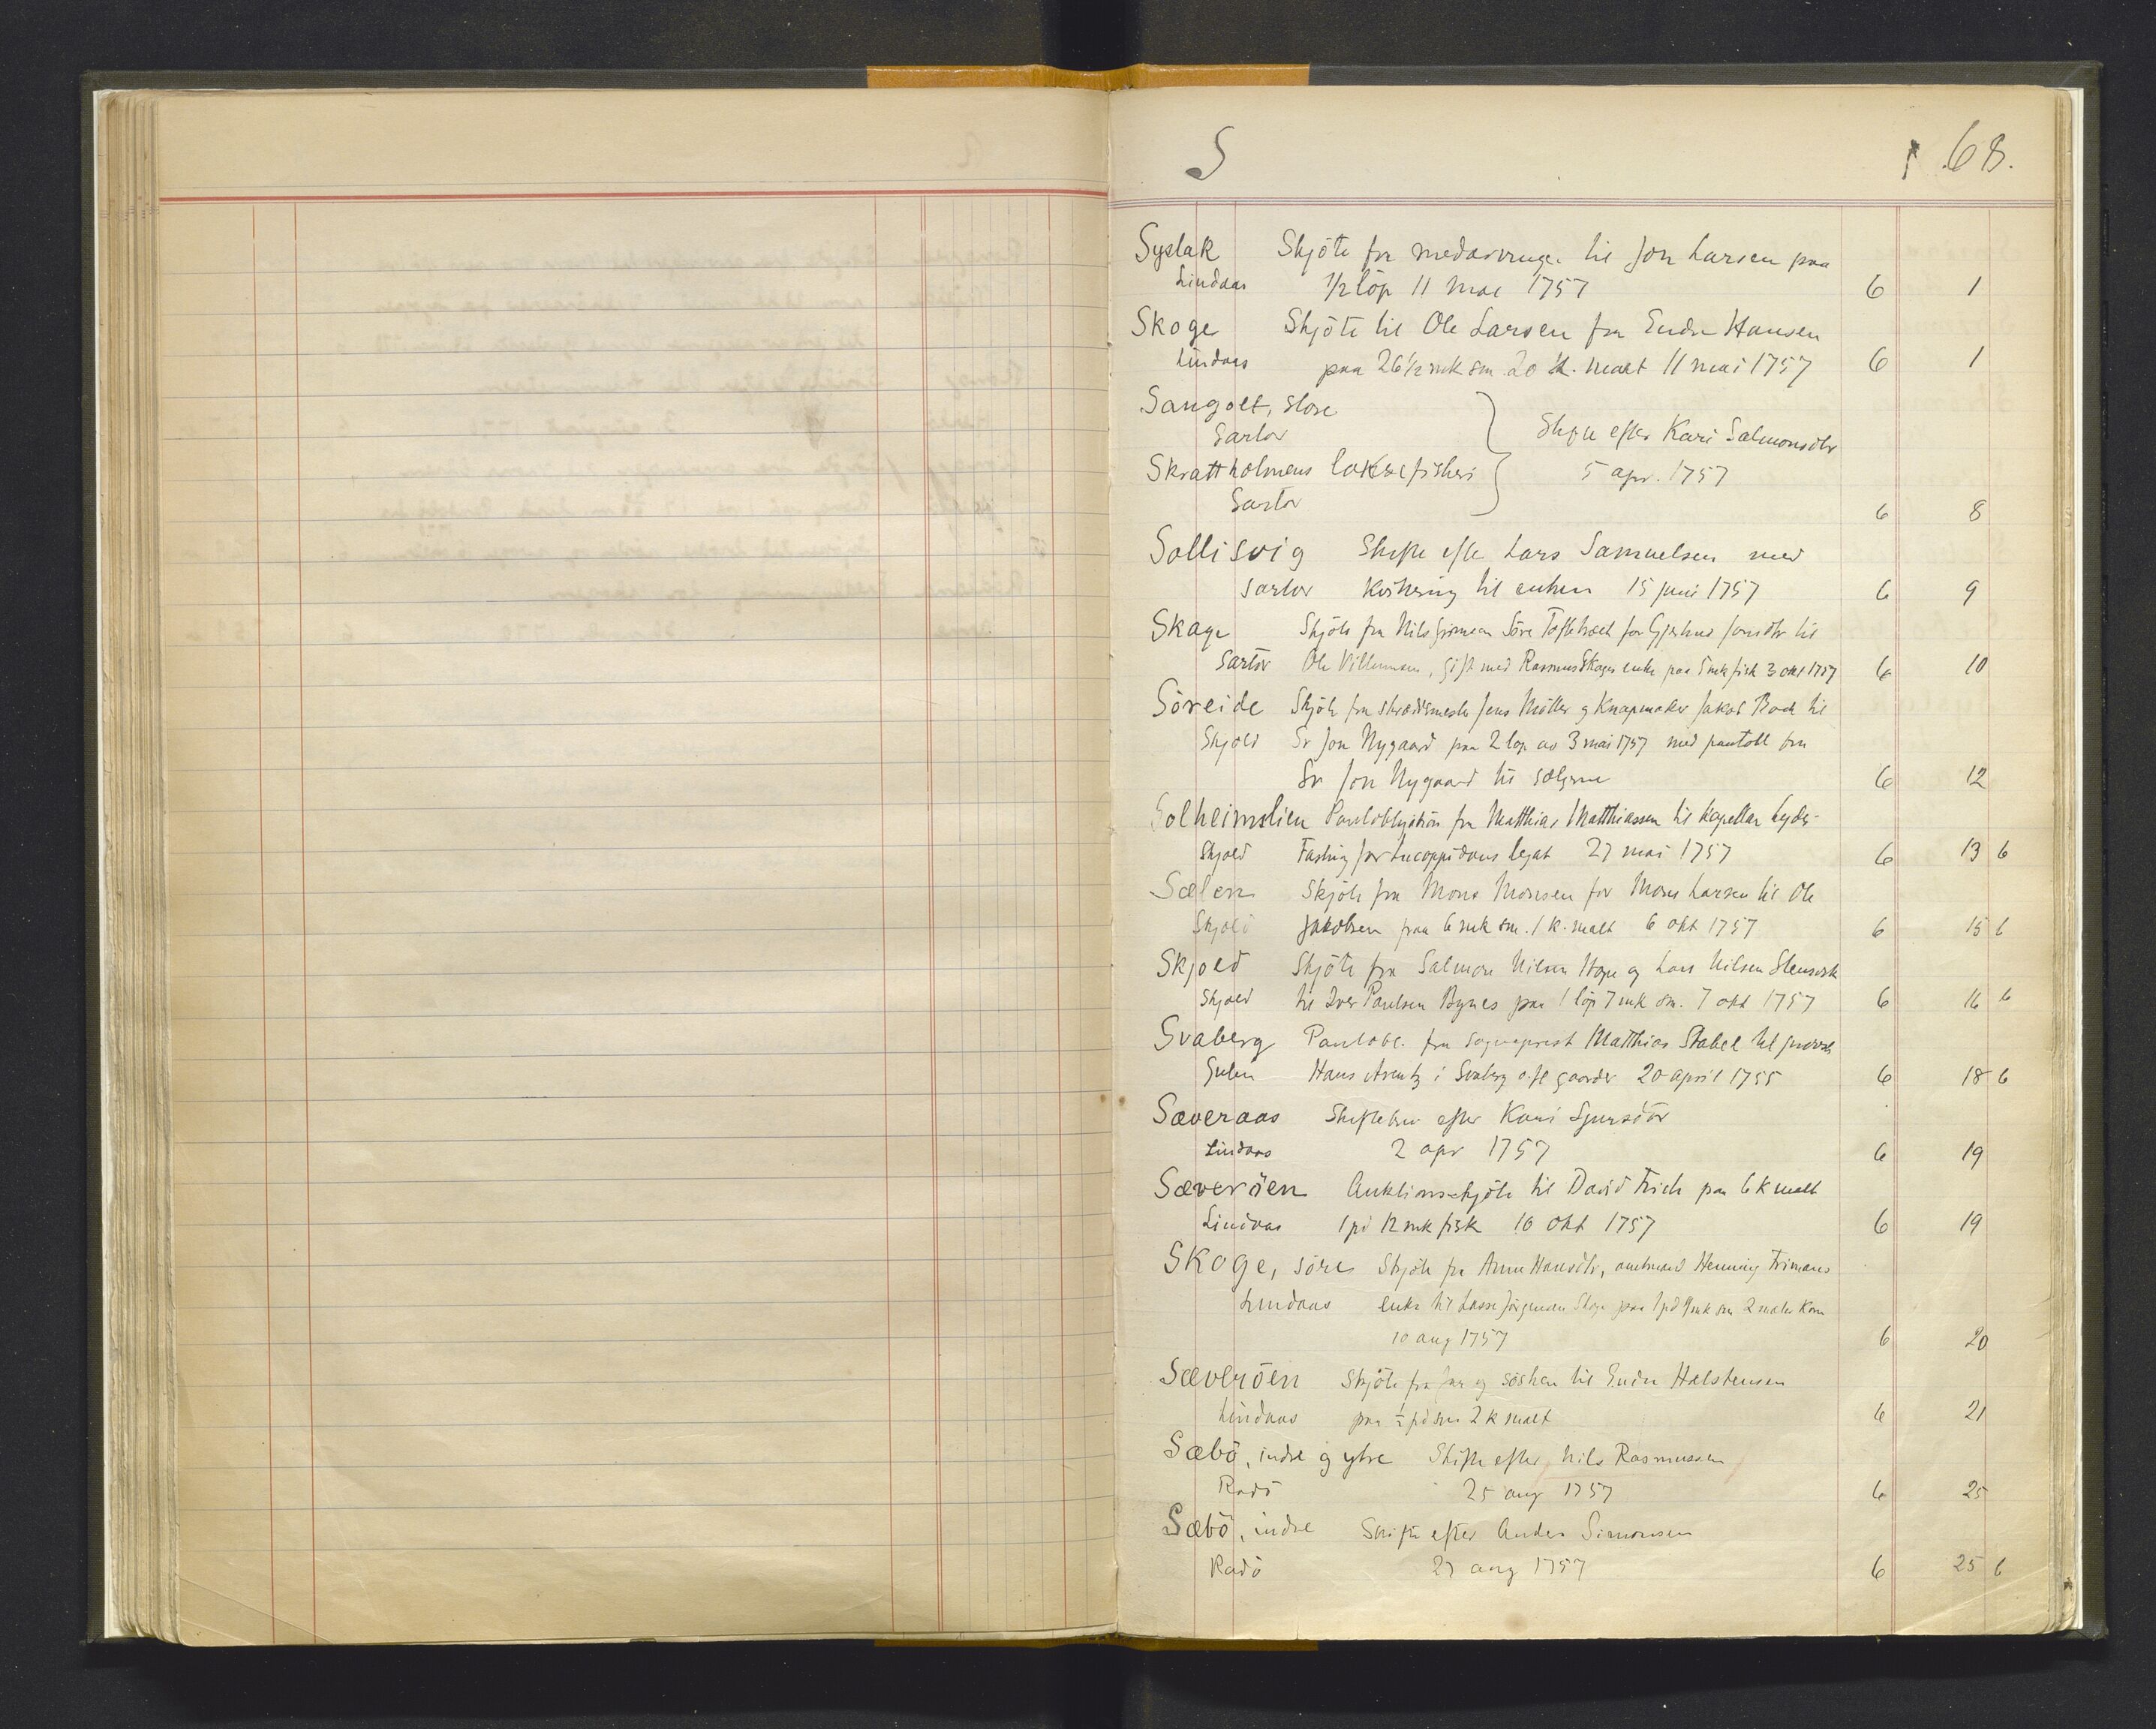 S 68.
Syslak Skjöte fra medarvinger til Jon Larsen paa
Lindaas 1/2 löp 11 mai 1757 6 1
Skoge Skjöte til Ole Larsen fra Endre Hansen
Lindaas paa 26 1/2 mk sm. 20 k. malt 11 mai 1757 6 1
Sangolt, store
Sartor Skifte efter Kari Salmonsdtr
Skrattholmens laksefiskeri 5 apr. 1757
Sartor 6 8
Sollisvig Skifte efter Lars Samuelsen med
Sartor til enken 15 juni 1757 6 9
Skage Skjöte fra Nils söre Toftekræt for Gjertrud Jonsdtr til
Sartor Ole Villumsen, gift med Rasmus Skages enke paa 5 mk fisk 3 okt 1757 6 10
Söreide Skjöte fra skræddermester Jens Möller og Knapmaker Jakob til
Skjold Sr Jon Nygaard paa 2 löp av 3 mai 1757 med pantobl fra
Sr Jon Nygaard til sælgerne 6 12
Solheimslien Pantobligation fra Matthias Matthiassen til Kapellan Lyder
Skjold Fasting for Lucoppidans legat 27 mai 1757 6 13 b
Sælen Skjöte fra Mons Monsen for Mons Larsen til Ole
Skjold Jakobsen paa 6 mk sm. 1 k. malt 6 okt 1757 6 15 b
Skjold Skjöte fra Salmon Nilsen Hope og Lars Nilsen
Skjold til Iver Paulsen Bynes paa 1 löp 7 mk sm. 7 okt 1757 6 16 b
Svaberg Pantobl. fra sogneprest Matthias Stabel til provst
Gulen Hans Arentz i Svaberg o. fl gaarder 20 april 1755 6 18 b
Sæveraas Skiftebrev efter Kari Sjursdtr
Lindaas 2 apr 1757 6 19
Sæveröen Auktionsskjöte til David Frich paa 6 k malt
Lindaas 1 pd 12 mk fisk 10 okt 1757 6 19
Skoge, söre Skjöte fra Anne Hansdtr, amtmand Henning Frimans
Lindaas enke til Lasse Jörgensen Skoge paa 1 pd 9 mk sm 2 mæler korn
10 aug 1757 6 20
Sæveröen Skjöte fra og sösken til Endre Halstensen
Lindaas paa 1/2 pd sm 2 k malt 6 21
Sæbö, indre og ytre Skifte efter Nils Rasmussen
Radö 25 aug 1757 6 25
Sæbö, indre Skifte efter Anders Simonsen
Radö 27 aug 1757 6 25 b